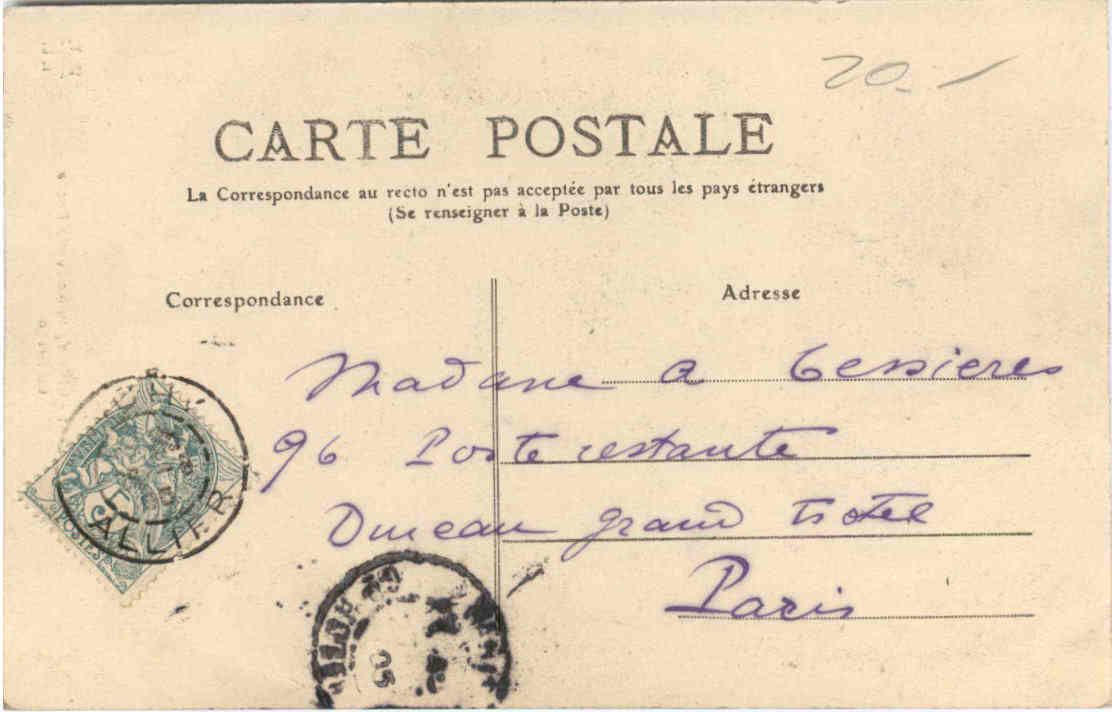 20.-
CARTE POSTALE
La Correspondance au recto n'est pas acceptée par tous les pays étrangers
(Se renseigner à la Poste)
Correspondance
Adresse
Madame a Tessieres
96 Poste restante
Bureau grand Hotel
Paris
ALLIER
POSTES
05